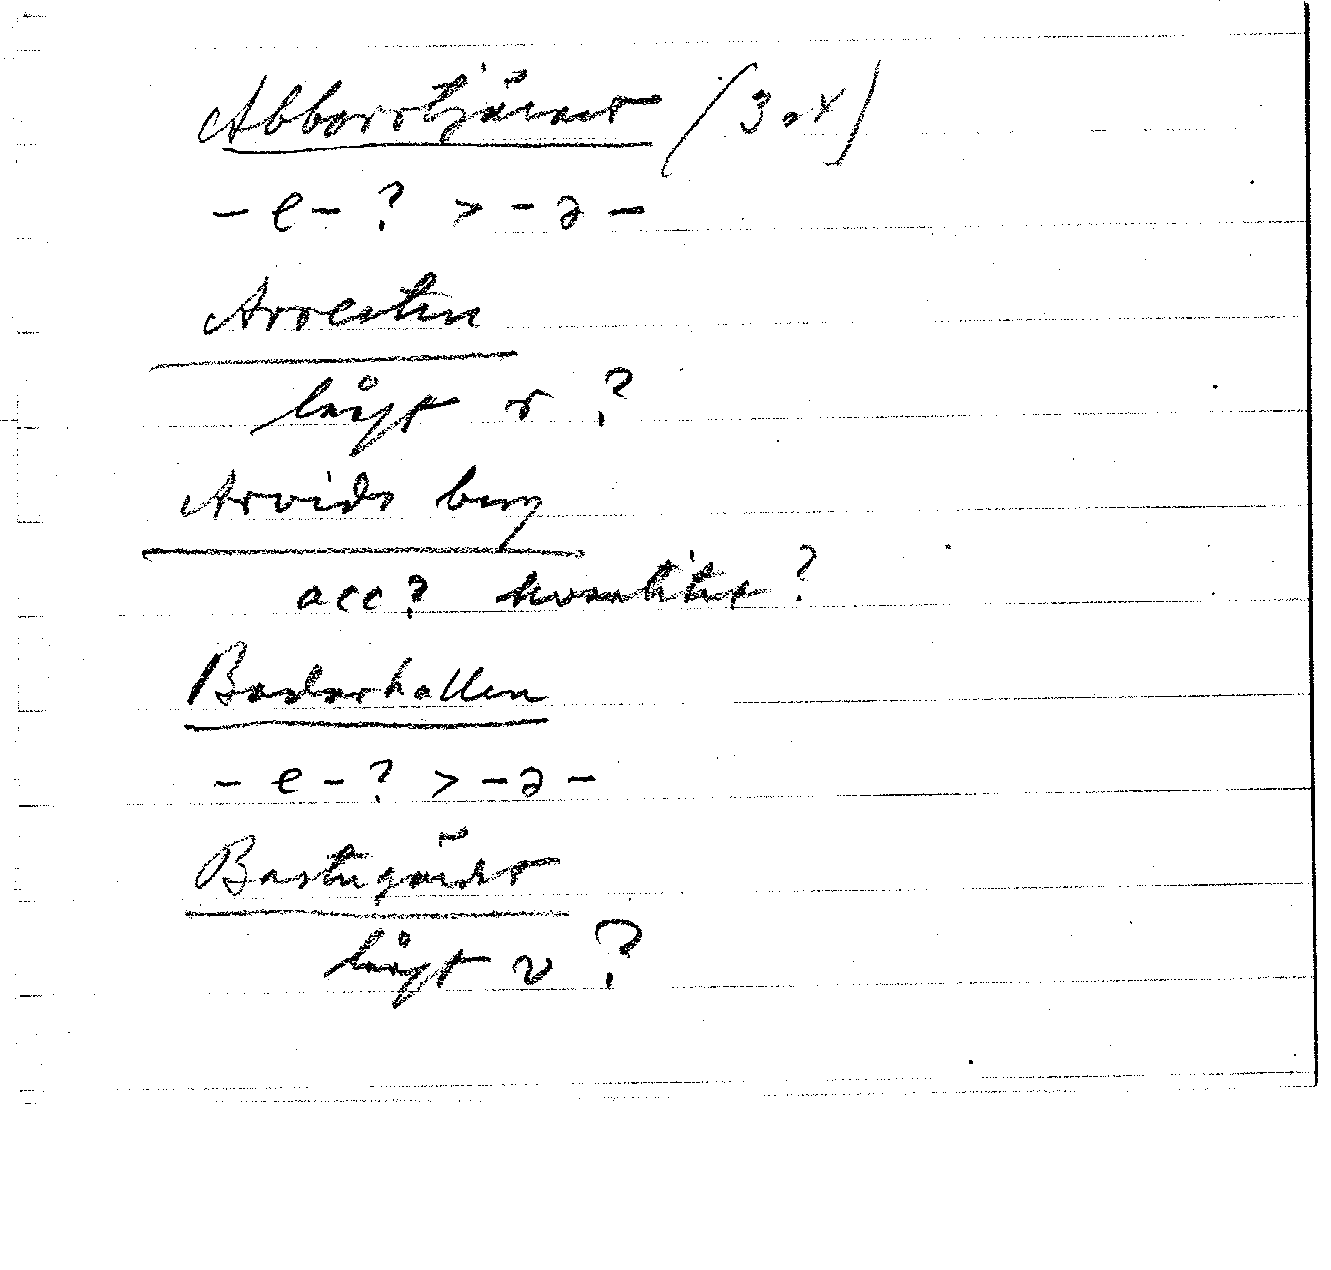 Abborrtjärnet (3 st)
- e - ? > - ə -
Arresten
långt r ?
Arvids berg
acc? kvantitet ?
Badarhallen
- e - ? > - ə -
Bastugärdet
långt v ?